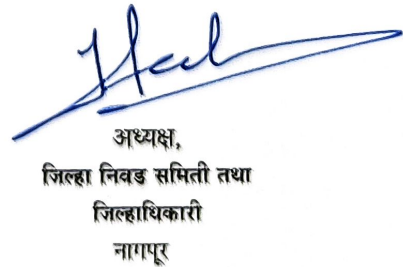 अध्यक्ष,
जिल्हा निवड समिती तथा
जिल्हाधिकारी
नागपूर